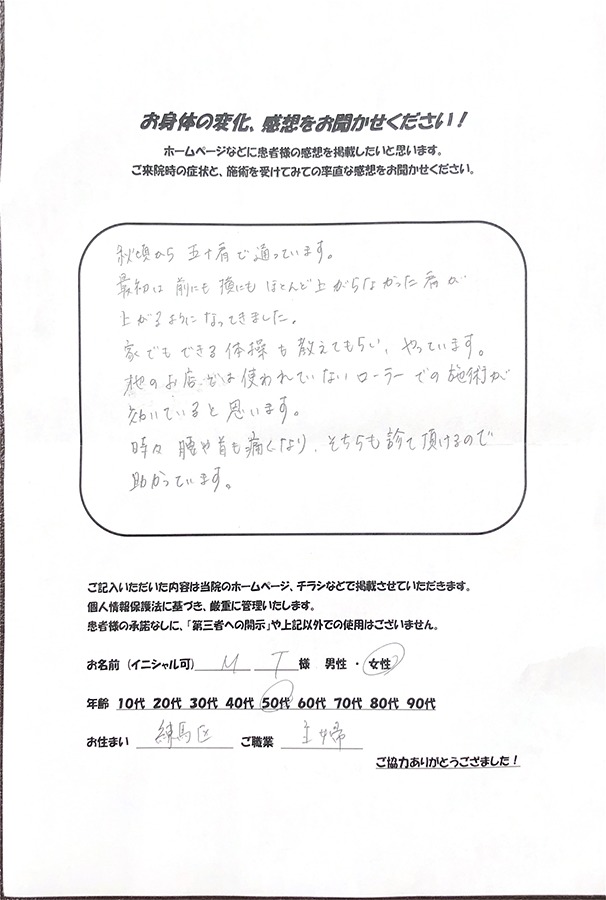 お身体の変化、感想をお聞かせください！
ホームページなどに患者様の感想を掲載したいと思います。
ご来院時の症状と、施術を受けてみての率直な感想をお聞かせください。
秋頃から 五十肩で通っています。
最初は 前にも 横にも ほとんど上がらなかった肩が
上がるようになってきました。
家でもできる体操も教えてもらい、やっています。
他のお店では使われていないローラーでの施術が
効いていると思います。
時々 腰や首も痛くなり、そちらも診て頂けるので
助かっています。
ご記入いただいた内容は当院のホームページ、チラシなどで掲載させていただきます。
個人情報保護法に基づき、厳重に管理いたします。
患者様の承諾なしに、「第三者への開示」や上記以外での使用はございません。
お名前（イニシャル可） M T 様 男性・女性
年齢 10代 20代 30代 40代 50代 60代 70代 80代 90代
お住まい 練馬区 ご職業 主婦
ご協力ありがとうござました！